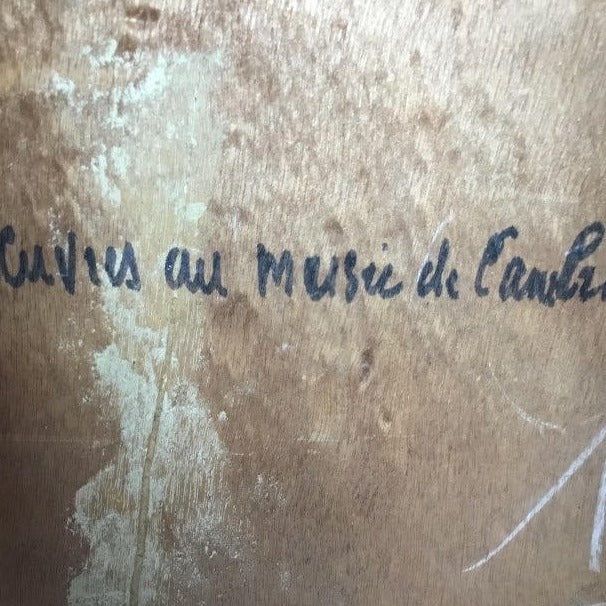 euvres au musée de Cambr